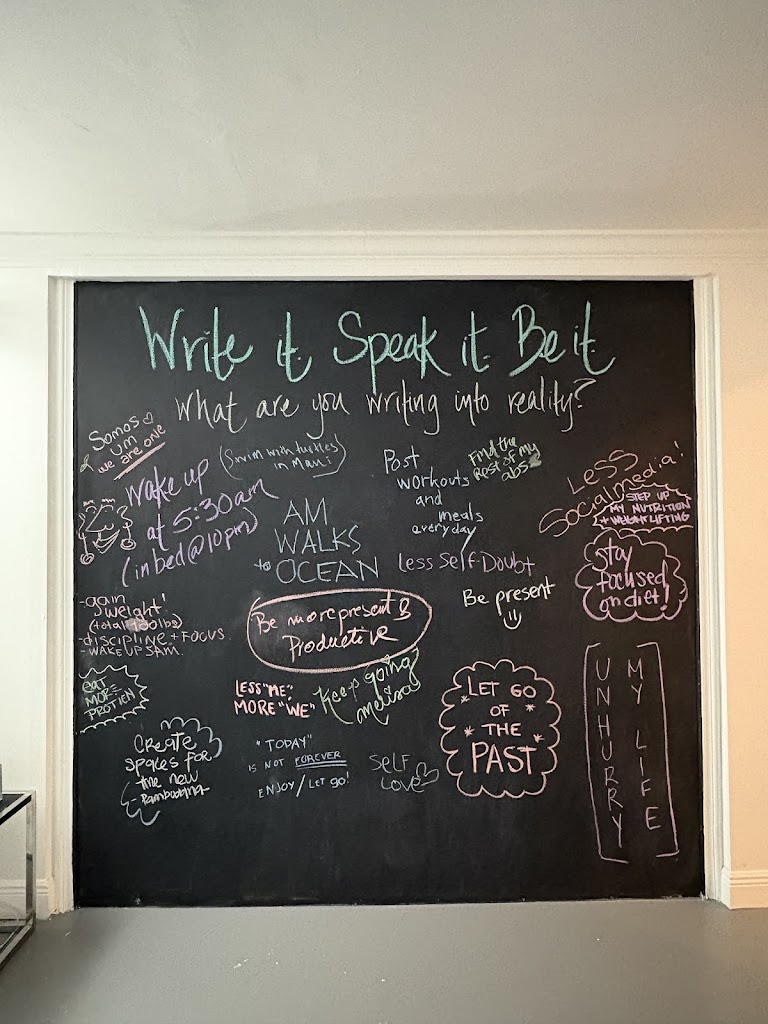 Write it Speak it Be it
What are you writing into reality?
Somos
um
we are one
wake up
at 5:30am
(in bed @ 10pm)
(Swim with turtles
in Maui)
AM
WALKS
to OCEAN
Post
workouts
and
meals
everyday
FIND the
Rest of my
abs
LESS
Social media!
STEP UP
MY NUTRITION
+ WEIGHTLIFTING
Less Self-Doubt
Be present
stay
focused
on diet!
-gain
weight!
(total lbs)
-discipline + FOCUS
-WAKE UP 5AM.
Be more present &
Productive
EAT
MORE
PROTIEN
LESS "ME",
MORE "WE"
Keep going
melissa
LET GO
OF
THE
PAST
Create
spaces for
the new
"TODAY"
IS NOT FOREVER
ENJOY/LET GO!
SELF
LOVE
UNHURRY
MY LIFE